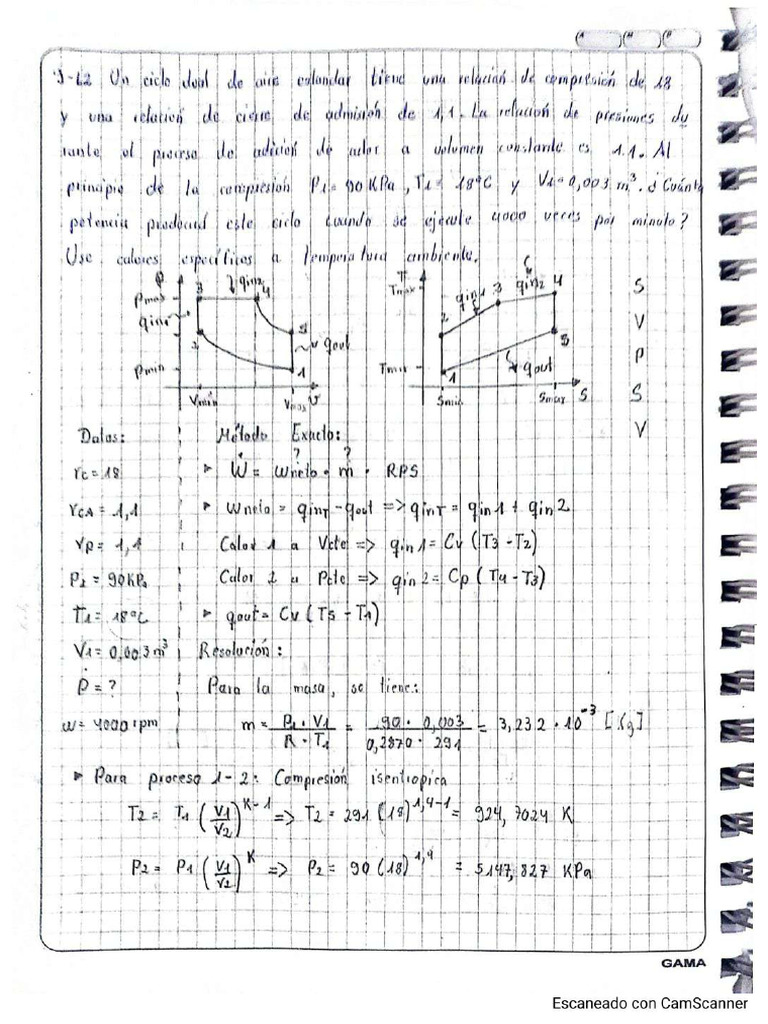 9-62 Un ciclo dual de aire estandar tiene una relación de compresión de 18
y una relación de cierre de admisión de 1,1. La relación de presiones du
rante el proceso de adición de calor a volumen constante es 1.1. Al
principio de la compresión P1= 90 KPa, T1= 18°C y V1= 0,003 m³. ¿Cuánta
potencia producirá este ciclo cuando se ejecute 4000 veces por minuto?
Use calores específicos a temperatura ambiente.
P
Pmax
3
qin2
4
qin1
2
5
qout
Pmin
1
Vmin
Vmax
V
T
Tmax
qin1
3
qin2
4
2
5
Tmin
1
qout
Smin
Smax
S
S
V
P
S
V
Datos:
Método Exacto:
rc = 18
? ?
Ẇ = wneto · m · RPS
rCA = 1,1
wneto = qinT - qout => qinT = qin1 + qin2
rp = 1,1
Calor 1 a Vcte => qin1 = Cv (T3 - T2)
P1 = 90KPa
Calor 2 a Pcte => qin2 = Cp (T4 - T3)
T1 = 18°C
qout = Cv (T5 - T1)
V1 = 0,003 m³
Resolución:
Ṗ = ?
Para la masa, se tiene:
w = 4000 rpm
m = P1 · V1 / R · T1 = 90 · 0,003 / 0,2870 · 291 = 3,232 · 10⁻³ [Kg]
Para proceso 1-2: Compresión isentropica
T2 = T1 (V1/V2)^K-1 => T2 = 291 (18)^1,4-1 = 924,7024 K
P2 = P1 (V1/V2)^K => P2 = 90 (18)^1,4 = 5147,827 KPa
GAMA
Escaneado con CamScanner